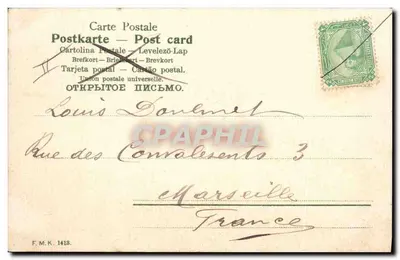 Carte Postale
Postkarte — Post card
Cartolina Postale — Levelező-Lap
Brefkort — Briefkaart — Brevkort
Tarjeta postal — Cartão postal.
Union postale universelle.
ОТКРЫТОЕ ПИСЬМО.
II
Louis Doulmet
CPAPHIL
Rue des Convalesents 3
Marseille
France
F. M. K. 1413.